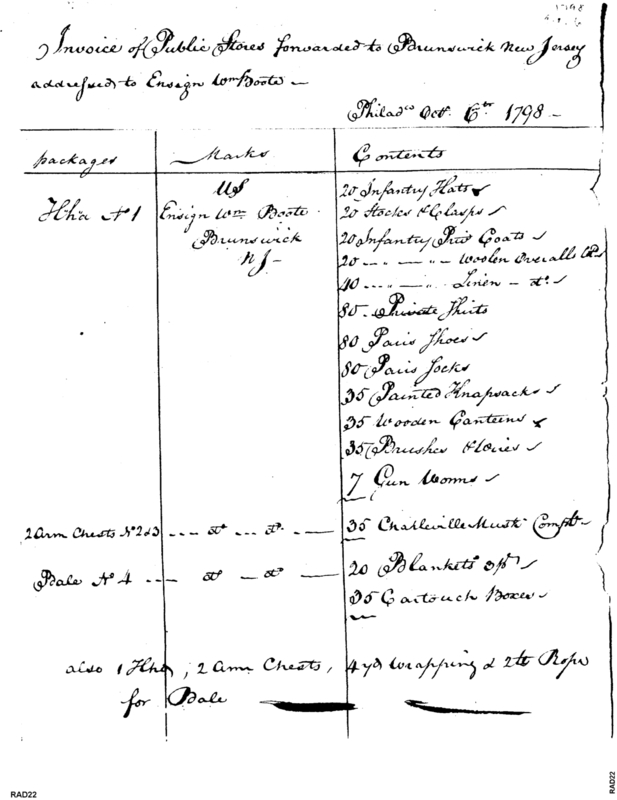 1798
Invoice of Public Stores forwarded to Brunswick New Jersey
addressed to Ensign Wm Boote —
Philada Octr. 6th 1798 —
packages Marks Contents
US 20 Infantry Hats
Hhd No 1 Ensign Wm Boote 20 Stocks & Clasps
Brunswick 20 Infantry Priv Coats
NJ — 20 — " — " — Woolen Overalls
40 — " — " Linen — do.
80 - Private Shirts
80 Pairs Shoes
80 Pairs Socks
35 Painted Knapsacks
35 Wooden Canteens
35 Brushes & Wires
7 Gun Worms
2 Arm Chests No 2 & 3 --- do -- do. -- 35 Charleville Muskts Complt
Bale No 4 --- do -- do -- 20 Blankets 3 pt
35 Cartouch Boxes
also 1 Hhd, 2 Arm Chests, 4 yds Wrapping & 2 lb Rope
for Bale
RAD22
RAD22